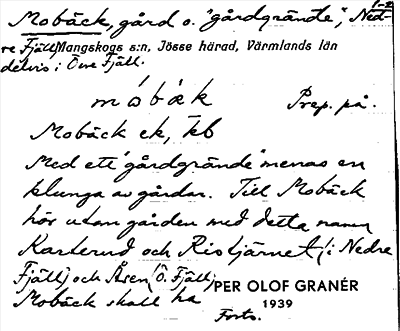 Mobäck, gård o. "gårdgrände", Ned- 1-2
re Fjäll, Mangskogs s:n, Jösse härad, Värmlands län
delvis i Övre Fjäll.
mobæk Prep. på.
Mobäck ek, kb
Med ett "gårdgrände" menas en
klunga av gårdar. Till Mobäck
hör utom gården med detta namn
Karterud och Ristjärnet (i Nedre
Fjäll) och Åsen (Ö. Fjäll).
Mobäck skall ha
PER OLOF GRANÉR
1939
Forts.